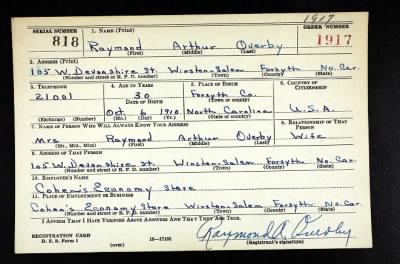 1917
SERIAL NUMBER 1. NAME (Print) ORDER NUMBER
818 Raymond Arthur Overby 1917
(First) (Middle) (Last)
2. ADDRESS (Print)
105 W. Devonshire St. Winston-Salem Forsyth No. Car.
(Number and street or R. F. D. number) (Town) (County) (State)
3. TELEPHONE 4. AGE IN YEARS 5. PLACE OF BIRTH 6. COUNTRY OF CITIZENSHIP
21001 30 Forsyth Co.
DATE OF BIRTH (Town or county)
Oct 6 1910 North Carolina U.S.A.
(Exchange) (Number) (Mo.) (Day) (Yr.) (State or country)
7. NAME OF PERSON WHO WILL ALWAYS KNOW YOUR ADDRESS 8. RELATIONSHIP OF THAT PERSON
Mrs Raymond Arthur Overby Wife
(Mr., Mrs., Miss) (First) (Middle) (Last)
9. ADDRESS OF THAT PERSON
105 W. Devonshire St. Winston-Salem Forsyth No. Car.
(Number and street or R. F. D. number) (Town) (County) (State)
10. EMPLOYER'S NAME
Cohen's Economy Store
11. PLACE OF EMPLOYMENT OR BUSINESS
Cohen's Economy Store Winston-Salem Forsyth No. Car.
(Number and street or R. F. D. number) (Town) (County) (State)
I AFFIRM THAT I HAVE VERIFIED ABOVE ANSWERS AND THAT THEY ARE TRUE.
REGISTRATION CARD Raymond A. Overby
D. S. S. Form 1 (over) 16—17105 (Registrant's signature)